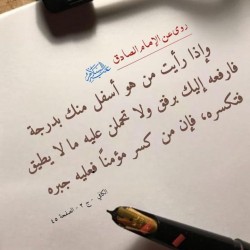 روي عن الإمام الصادق
عليه السلام
وإذا رأيت من هو أسفل منك بدرجة
فارفعه إليك برفق ولا تحملن عليه ما لا يطيق
فتكسره، فإن من كسر مؤمناً فعليه جبره
الكافي - ج ٢ - الصفحة ٤٥